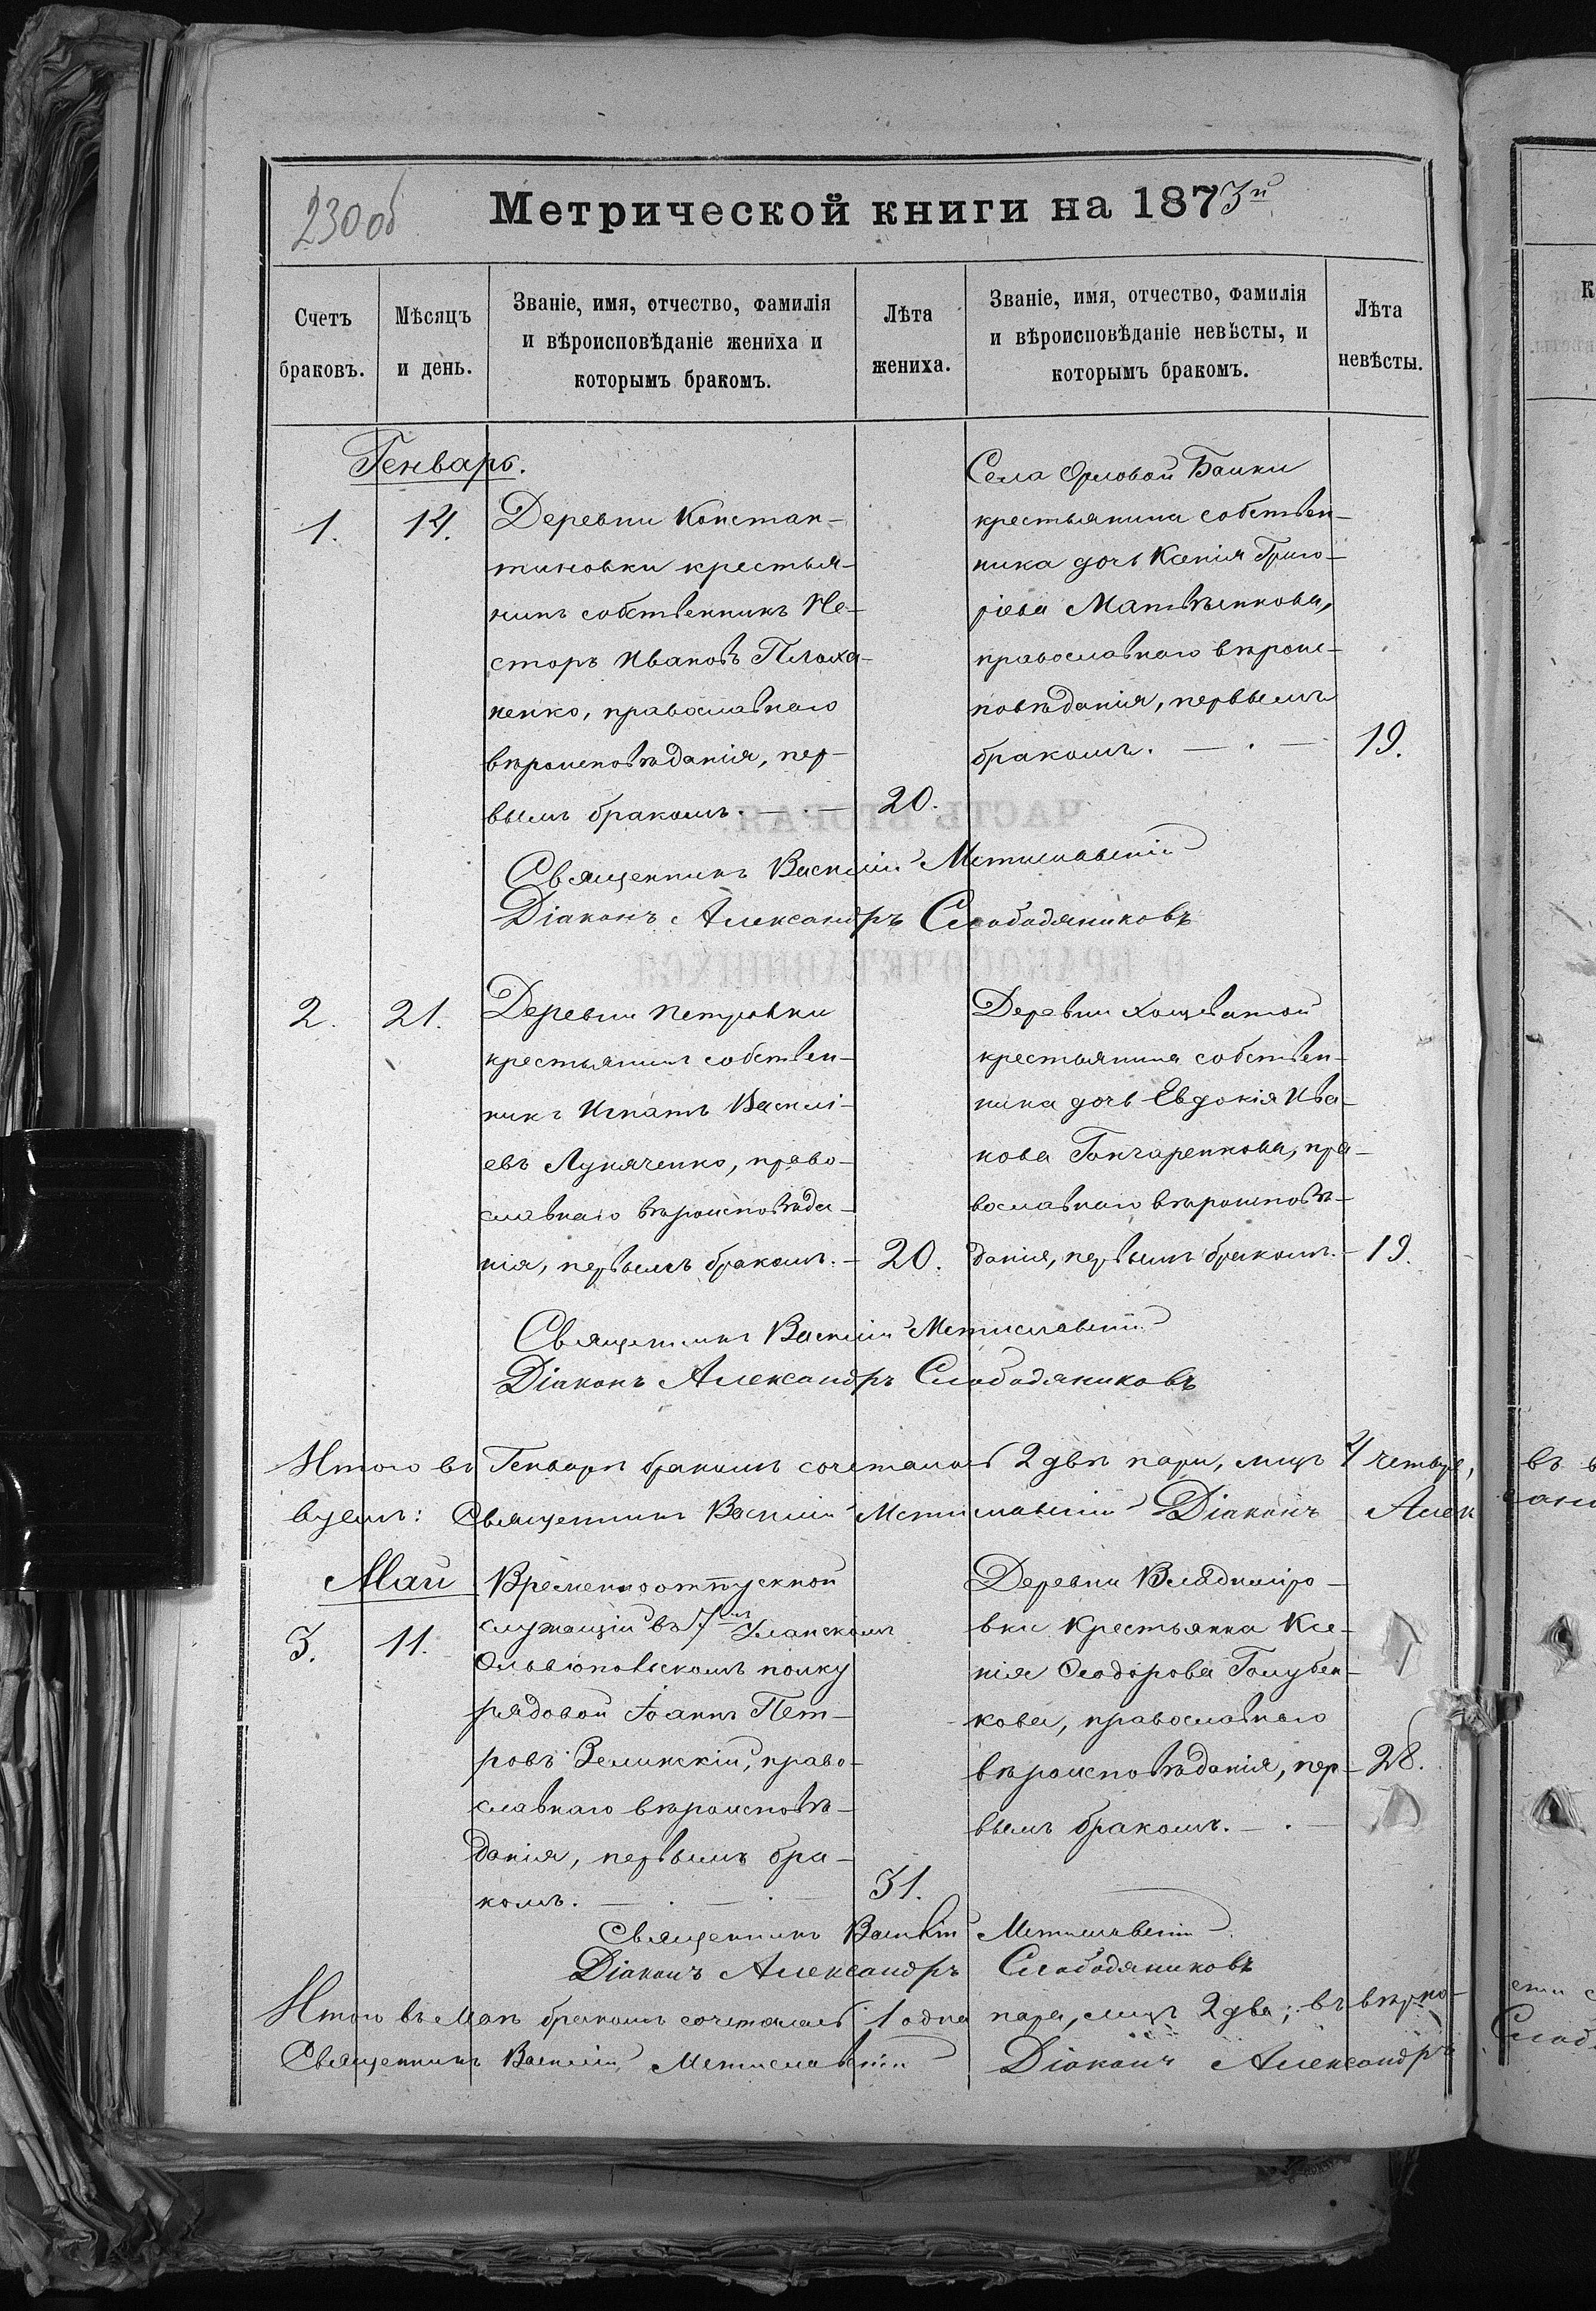 230 об
Метрической книги на 1873й
Счетъ браковъ.
Мѣсяцъ и день.
Званіе, имя, отчество, фамилія и вѣроисповѣданіе жениха и которымъ бракомъ.
Лѣта жениха.
Званіе, имя, отчество, фамилія и вѣроисповѣданіе невѣсты, и которымъ бракомъ.
Лѣта невѣсты.
Генварь.
1.
14.
Деревни Констан-
тиновки крестья-
нинъ собственникъ Не-
сторъ Ивановъ Плоха-
ненко, православнаго
вѣроисповѣданія, пер-
вымъ бракомъ.
20.
Села Орловой Балки
крестьянина собствен-
ника дочь Ксенія Григо-
ріева Матвѣенкова,
православнаго вѣроис-
повѣданія, первымъ
бракомъ.
19.
Священникъ Василій Мстиславскій
Діаконъ Александръ Слободяниковъ
2.
21.
Деревни Петровки
крестьянинъ собствен-
никъ Игнатъ Василі-
евъ Лукяченко, право-
славнаго вѣроисповѣда-
нія, первымъ бракомъ.
20.
Деревни Хощеватой
крестьянина собствен-
ника дочь Евдокія Ива-
нова Гончаренкова, пра-
вославнаго вѣроисповѣ-
данія, первымъ бракомъ.
19.
Священникъ Василій Мстиславскій
Діаконъ Александръ Слободяниковъ
Итого въ Генварѣ бракомъ сочеталось 2 двѣ пары, лицъ 4 четыре,
Священникъ Василій Мстиславскій Діаконъ Алек
Май
3.
11.
Временноотпускной
служащій въ 7мъ Уланскомъ
Ольвіопольскомъ полку
рядовой Іоаннъ Пет-
ровъ Зелинскій, право-
славнаго вѣроисповѣ-
данія, первымъ бра-
комъ.
31.
Деревни Владиміро-
вки Крестьянка Ксе-
нія Ѳеодорова Голубен-
кова, православнаго
вѣроисповѣданія, пер-
вымъ бракомъ.
28.
Священникъ Василій Мстиславскій
Діаконъ Александръ Слободяниковъ
Итого въ Маѣ бракомъ сочеталась 1 одна пара, лицъ 2 два; въ
Священникъ Василій Мстиславскій Діаконъ Александръ